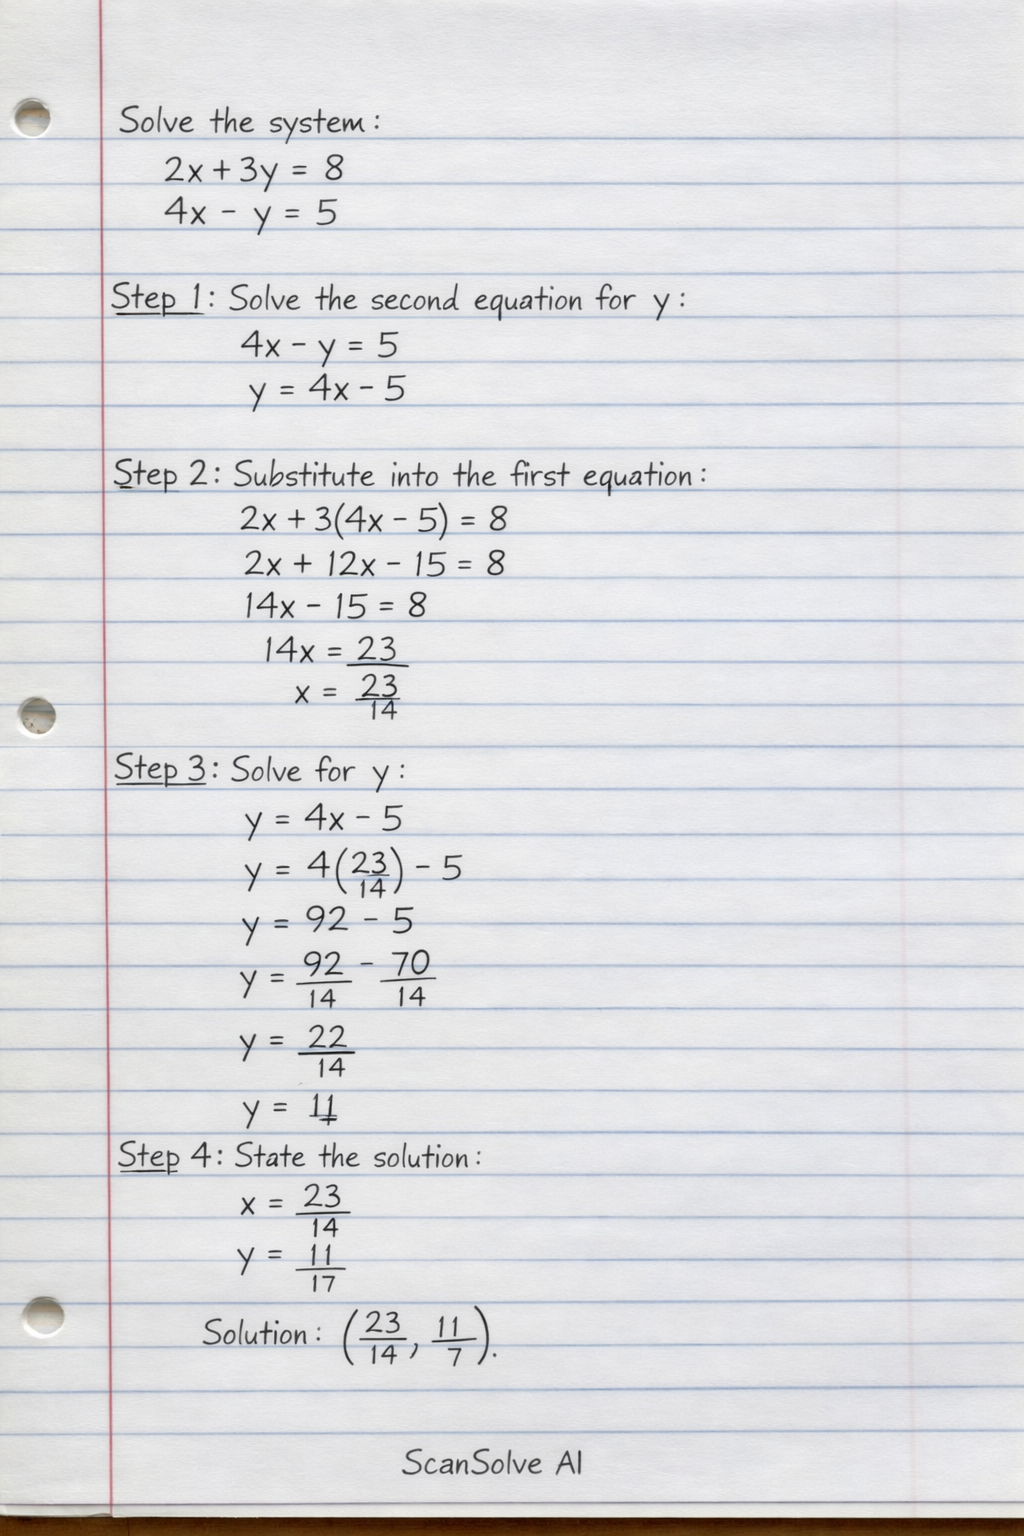 Solve the system:
2x + 3y = 8
4x - y = 5
Step 1: Solve the second equation for y:
4x - y = 5
y = 4x - 5
Step 2: Substitute into the first equation:
2x + 3(4x - 5) = 8
2x + 12x - 15 = 8
14x - 15 = 8
14x = 23
x = 23/14
Step 3: Solve for y:
y = 4x - 5
y = 4(23/14) - 5
y = 92 - 5
y = 92/14 - 70/14
y = 22/14
y = 11
Step 4: State the solution:
x = 23/14
y = 11/17
Solution: (23/14, 11/7).
ScanSolve AI